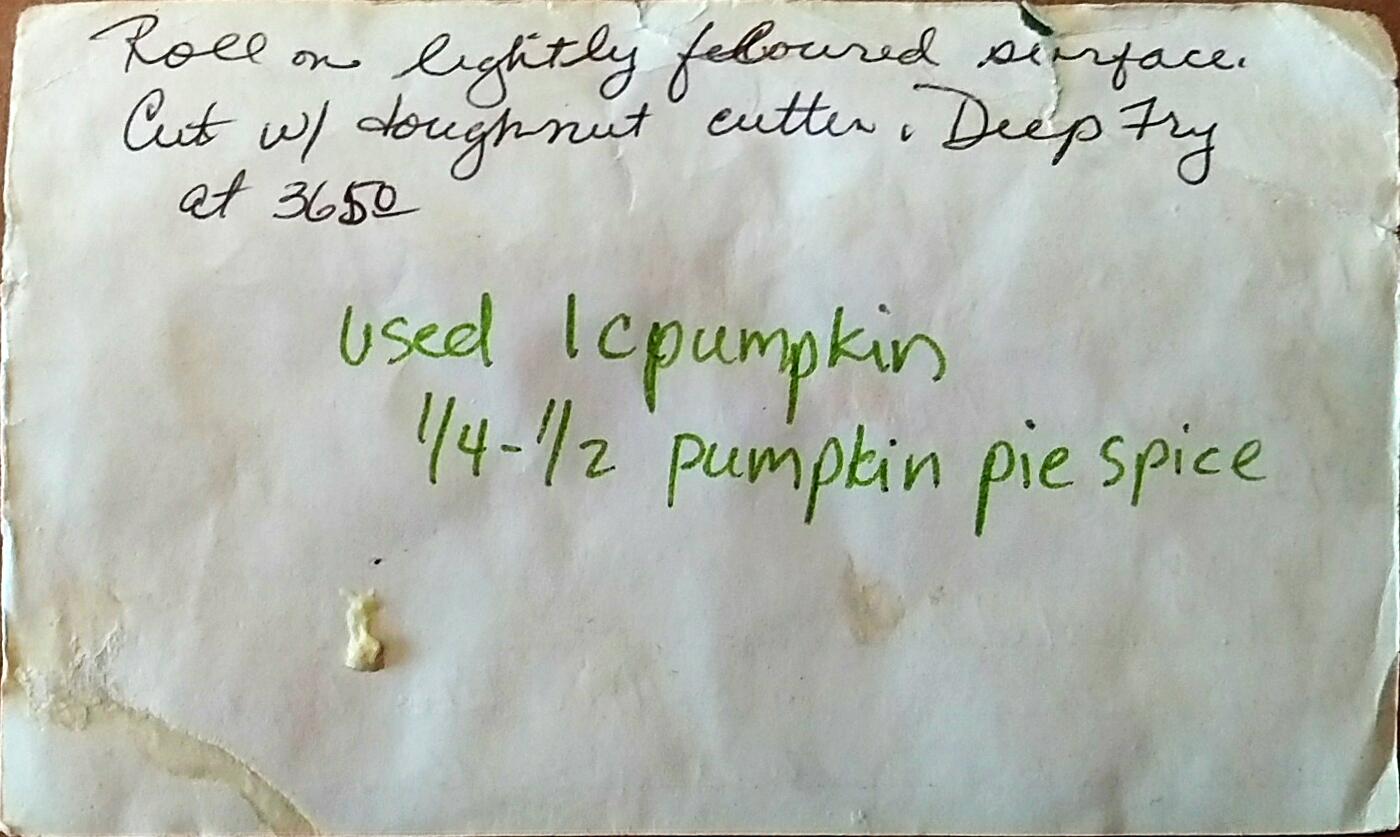 Roll on lightly feloured surface.
Cut w/ doughnut cutter. Deep Fry
at 365º
used 1 c pumpkin
1/4-1/2 pumpkin pie spice